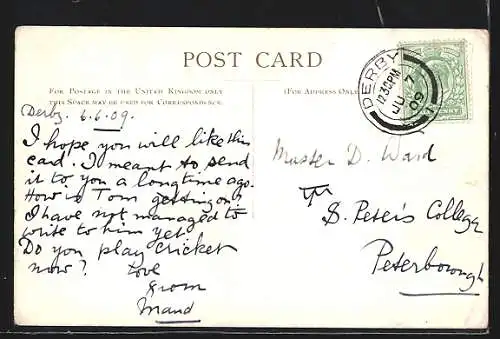 POST CARD
FOR POSTAGE IN THE UNITED KINGDOM ONLY
THIS SPACE MAY BE USED FOR CORRESPONDENCE.
(FOR ADDRESS ONLY
DERBY
12.30PM
JU 7
09
Derby. 6.6.09.
I hope you will like this
card. I meant to send
it to you a long time ago.
How is Tom getting on?
I have not managed to
write to him yet.
Do you play cricket
now? Love
from
Maud
Master D. Ward
S. Peter's College
Peterborough